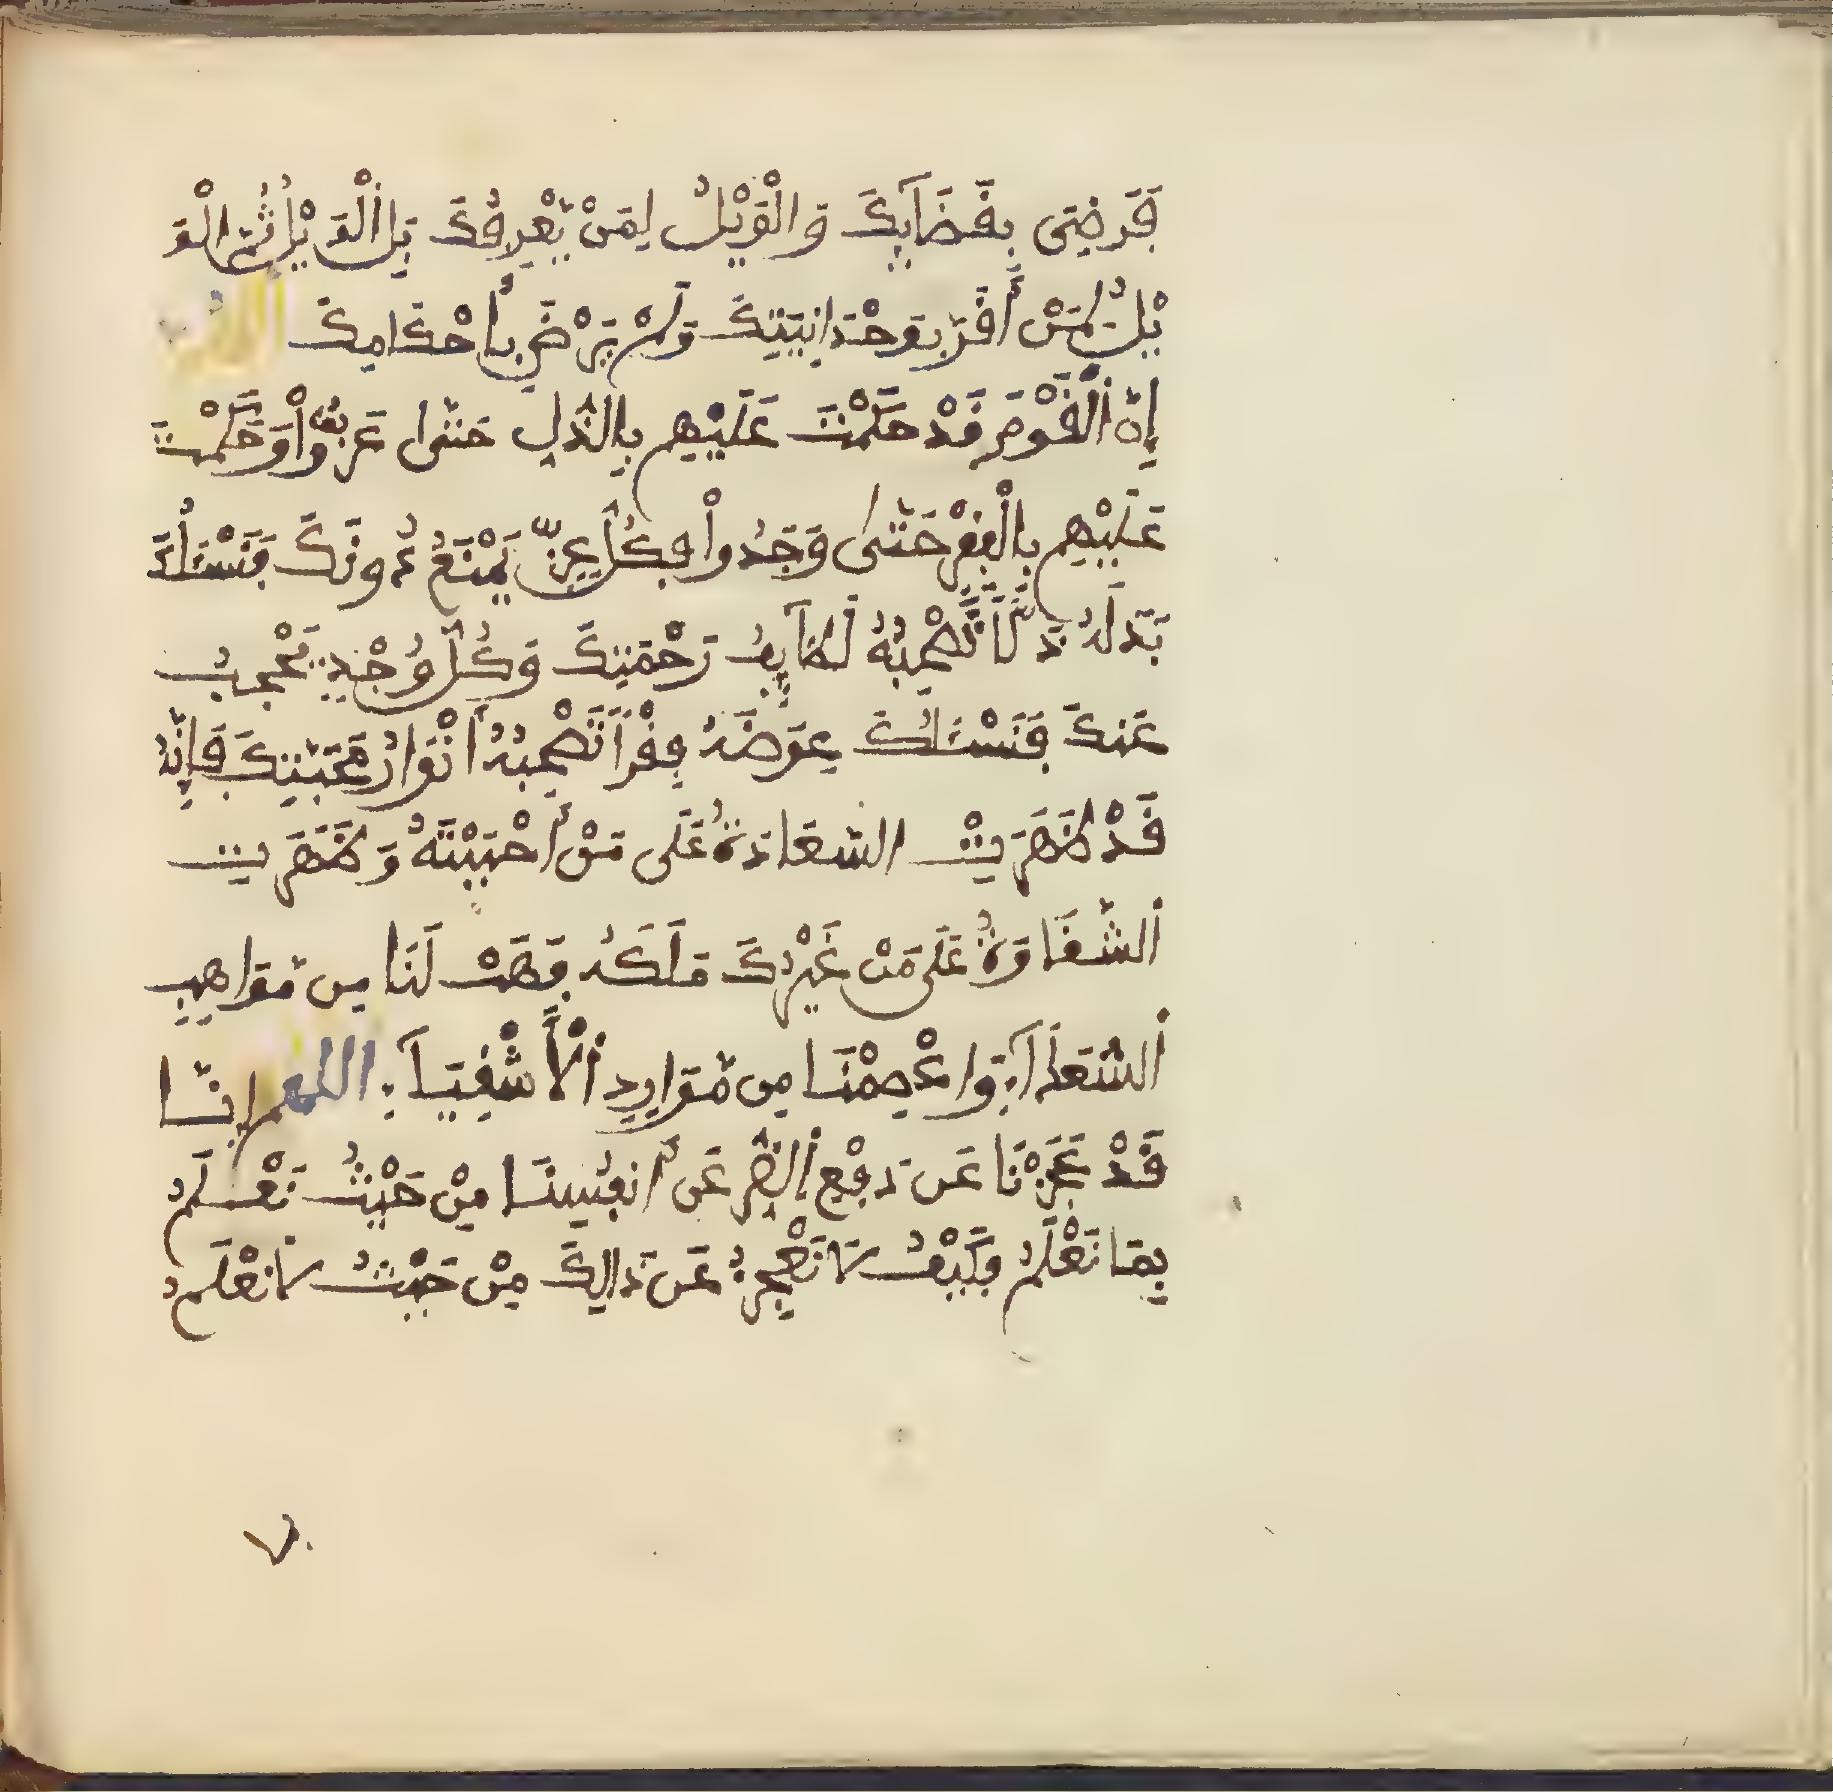 فَرَضِىَ بِقَضَآيِٕكَ وَالْوَيْلُ لِمَنْ يَّعْرِفُكَ بَلِ الْوَيْلُ ثُمَّ الْوَ
يْلُ لِمَنْ أَقَرَّ بِوَحْدَانِيَّتِكَ وَلَمْ يَرْضَ بِأَحْكَامِكَ اللهم
إِنَّ الْقَوْمَ قَدْ حَكَمْتَ عَلَيْهِم بِالذُّلِّ حَتَّى عَزُّواْ وَحَكَمْتَ
عَلَيْهِم بِالْفَقْرِ حَتَّى وَجَدُواْ فَكُلُّ عِزٍّ يَمْنَعُ دُونَكَ فَنَسْـَٔلُكَ
بَدَلَهُ ذُلًّا تَصْحَبُهُ لَطَآيِٕفُ رَحْمَتِكَ وَكُلُّ وُجْدٍ يَحْجُبُ
عَنكَ فَنَسْـَٔلُكَ عِوَضَهُ فَقْراً تَصْحَبُهُ أَنْوَارُ مَحَبَّتِكَ فَإِنَّهُ
قَدْ ظَهَرَتِ السَّعَادَةُ عَلَى مَنْ أَحْبَبْتَهُ وَظَهَرَتِ
الشَّقَاوَةُ عَلَى مَنْ غَيْرُكَ مَلَكَهُ فَهَبْ لَنَا مِن مَّوَاهِبِ
السُّعَدَآءِ وَاعْصِمْنَا مِن مَّوَارِدِ الْأَشْقِيَآءِ اللهم إِنَّا
قَدْ عَجَزْنَا عَن دَفْعِ الضُّرِّ عَنْ أَنفُسِنَا مِنْ حَيْثُ نَعْلَمُ
بِمَا نَعْلَمُ فَكَيْفَ لَا نَعْجِزُ عَن ذَالِكَ مِنْ حَيْثُ لَا نَعْلَمُ